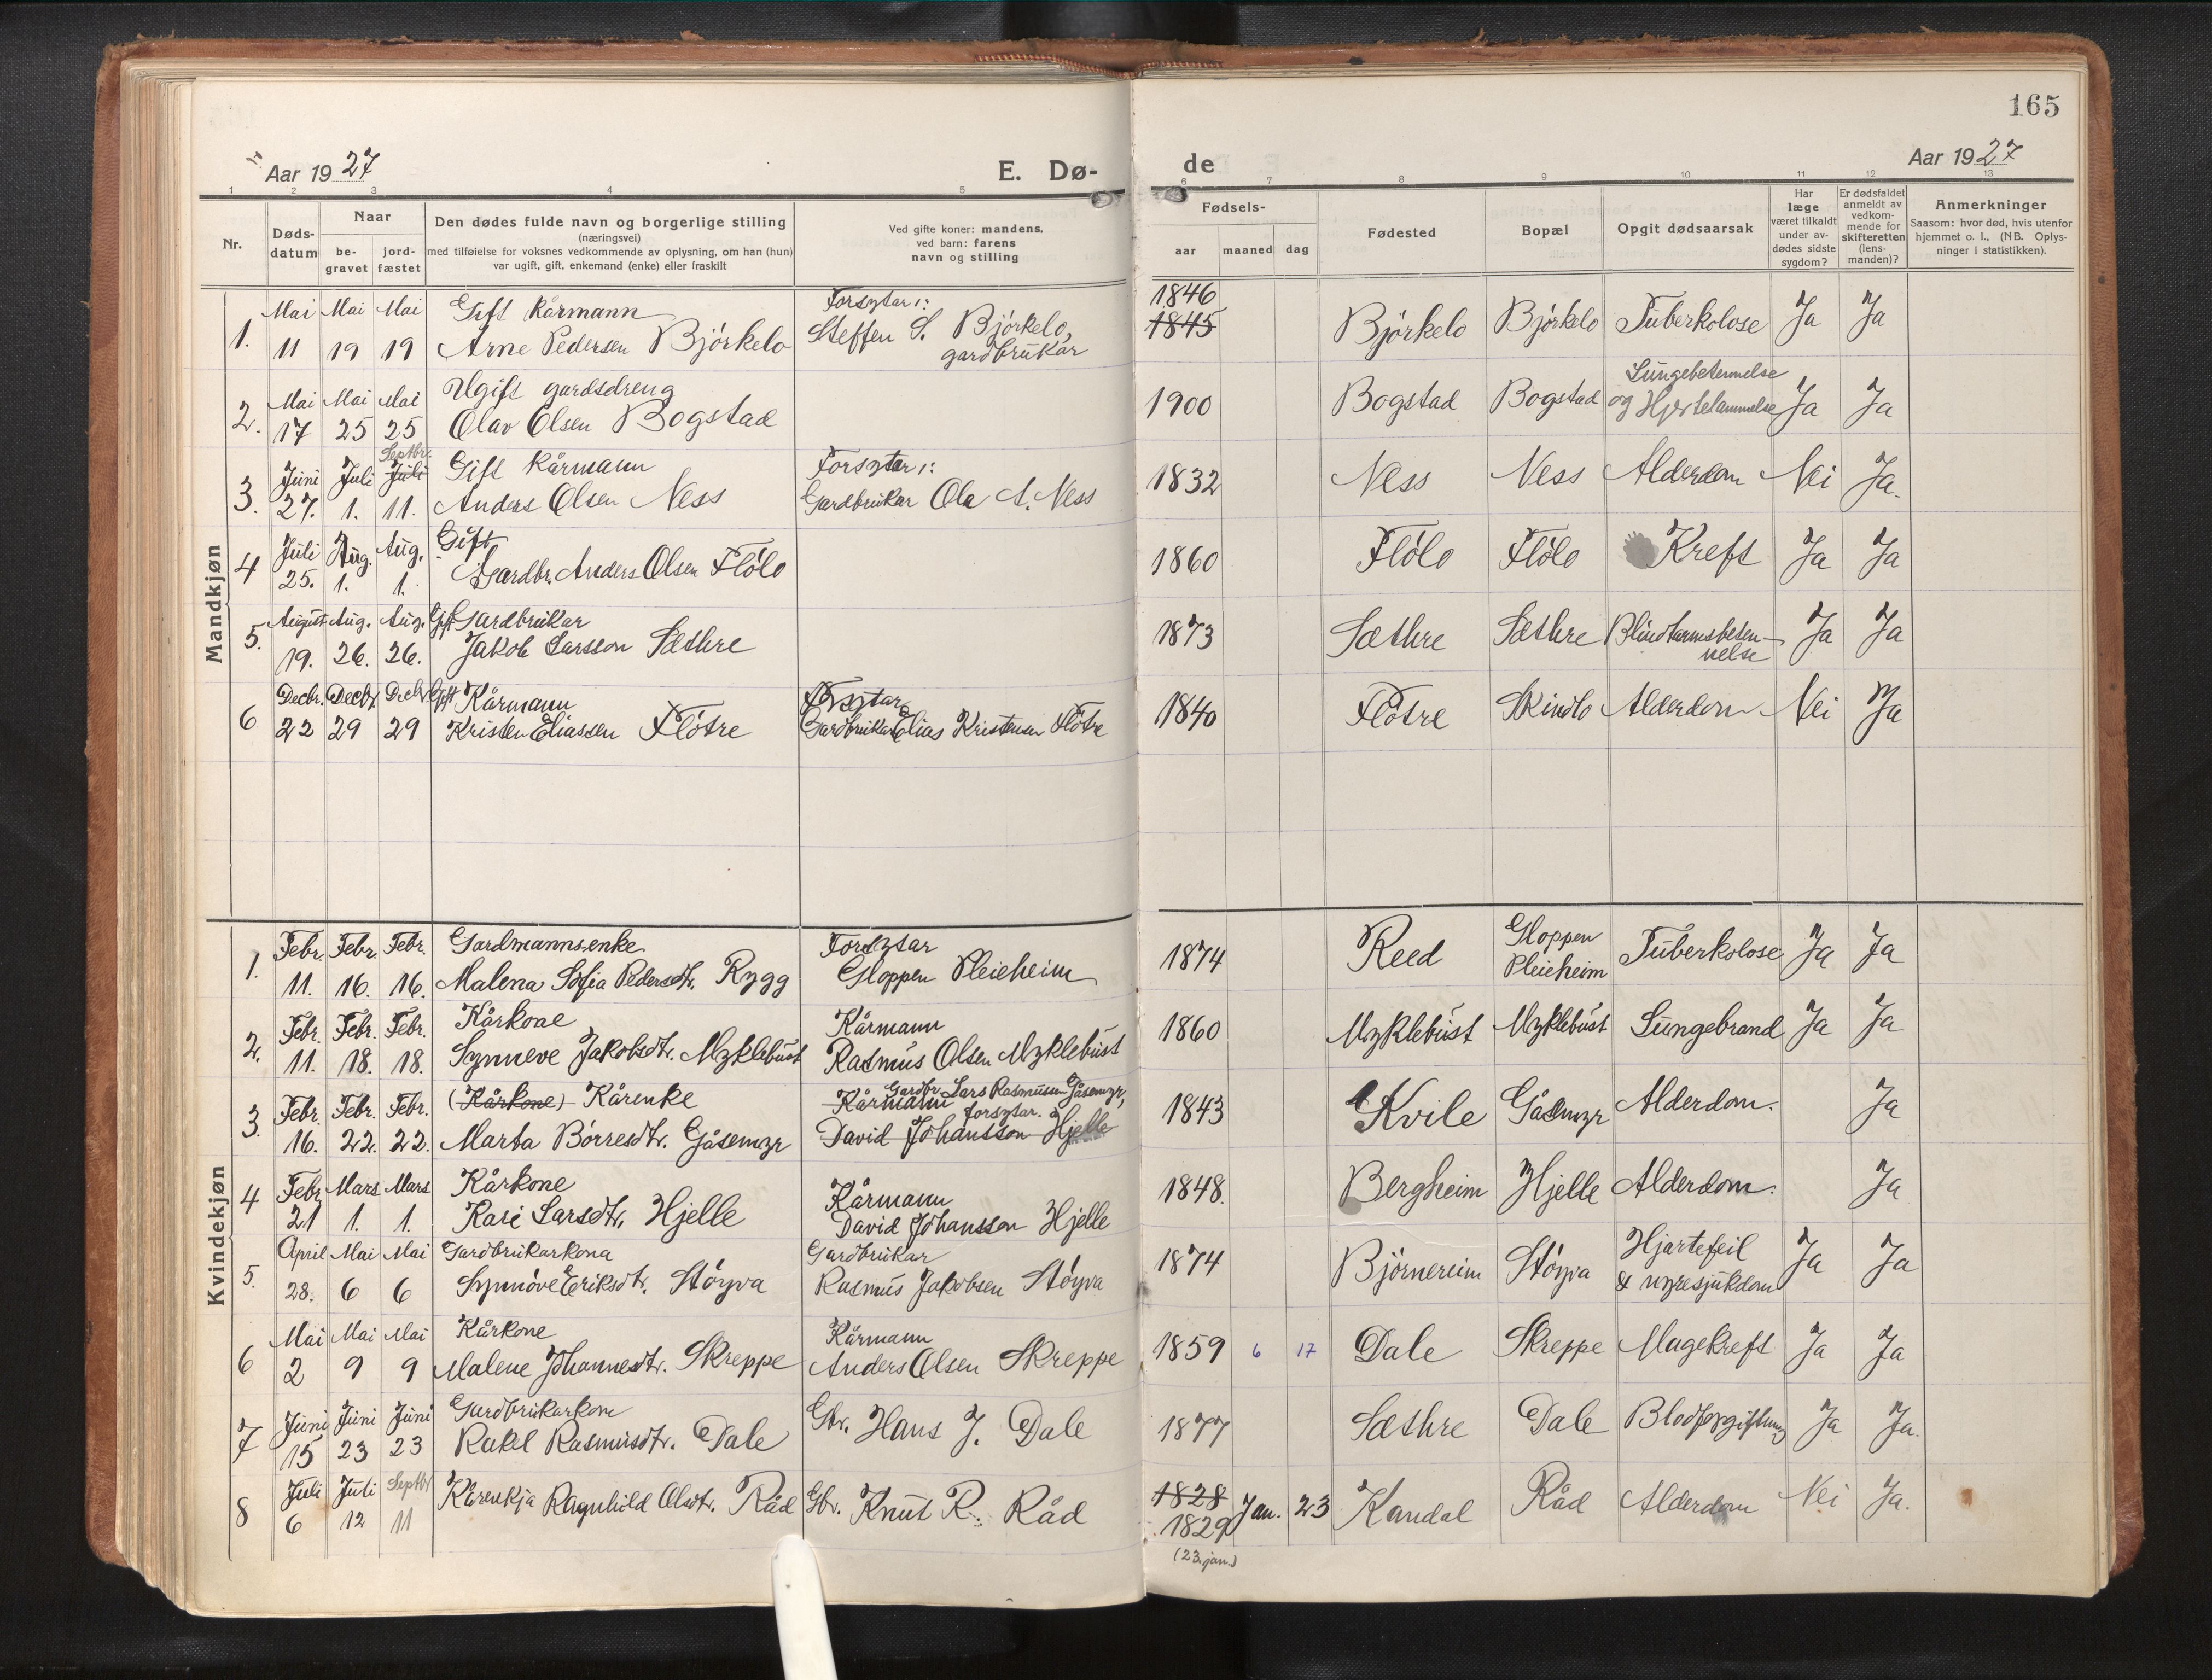 165
Aar 1927
E. Dø-
de
Aar 1927
1 2 3 4 5 6 7 8 9 10 11 12 13
Nr.
Døds-
datum
Naar
be-
gravet
jord-
fæstet
Den dødes fulde navn og borgerlige stilling
(næringsvei)
med tilføielse for voksnes vedkommende av oplysning, om han (hun)
var ugift, gift, enkemand (enke) eller fraskilt
Ved gifte koner: mandens,
ved barn: farens
navn og stilling
Fødsels-
aar maaned dag
Fødested
Bopæl
Opgit dødsaarsak
Har
læge
været tilkaldt
under av-
dødes sidste
sygdom?
Er dødsfaldet
anmeldt av
vedkom-
mende for
skifteretten
(lens-
manden)?
Anmerkninger
Saasom: hvor død, hvis utenfor
hjemmet o. l., (NB. Oplys-
ninger i statistikken).
Mandkjøn
1. Mai Mai Mai Gift Kårmann Forsytar: 1846
11 19 19 Arne Pedersen Björkelo Steffen S. Björkelo, gardbrukar 1845 Björkelo Björkelo Tuberkolose Ja Ja
2. Mai Mai Mai Ugift gardsdreng Lungebetennelse
17 25 25 Olav Olsen Bogstad 1900 Bogstad Bogstad og Hjertelammelse Ja Ja
Septbr.
3. Juni Juli Juli Gift Kårmann Forsytar:
27. 1. 11. Anders Olsen Ness Gardbrukar Ole A. Ness 1832 Ness Ness Alderdom Nei Ja.
4 Juli Aug. Aug. Gift
25. 1. 1. Gardbr. Anders Olsen Flölo 1860 Flölo Flölo Kreft Ja Ja
5. August Aug. Aug. Gift Gardbrukar
19. 26. 26. Jakob Larsson Sæthre 1873 Sæthre Sæthre Blindtarmsbeten-
nelse Ja Ja
6 Decbr. Decbr. Decbr. Gift Kårmann Forsytar
22 29 29 Kristen Eliassen Flötre Gardbrukar Elias Kristensen Flötre 1840 Flötre Skindlo Alderdom Nei Ja
Kvindekjøn
1. Febr. Febr. Febr. Gardmannsenke Forsytar Gloppen
11. 16. 16. Malena Sofia Pedersdtr. Rygg Gloppen Pleieheim 1874 Reed Pleieheim Tuberkolose Ja Ja
2. Febr. Febr. Febr. Kårkone Kårmann
11. 18. 18. Synneve Jakobsdtr. Myklebust Rasmus Olsen Myklebust 1860 Myklebust Myklebust Lungebrand Ja Ja
3. Febr. Febr. Febr. (Kårkone) Kårenke Kårmann Gardbr. Lars Rasmusen Gåsemyr, forsytar.
16. 22. 22. Marta Börresdtr. Gåsemyr David Johansson Hjelle 1843 Kvile Gåsemyr Alderdom. Ja
4 Febr. Mars Mars Kårkone Kårmann
21 1. 1. Kari Larsdtr. Hjelle David Johansson Hjelle 1848. Bergheim Hjelle Alderdom. Ja
5. April Mai Mai Gardbrukarkona Gardbrukar Hjartefeil
28. 6 6 Synnöve Eriksdtr. Störva Rasmus Jakobsen Störva 1874 Björnereim Störva & nyresjukdom Ja Ja
6 Mai Mai Mai Kårkone Kårmann
2 9 9 Malene Johannesdtr. Skreppe Anders Olsen Skreppe 1859 6 17 Dale Skreppe Magekreft Ja Ja
7 Juni Juni Juni Gardbrukarkone
15 23 23 Rakel Rasmusdtr. Dale Gbr. Hans J. Dale 1877 Sæthre Dale Blodforgiftning Ja Ja.
8 Juli Juli Septbr. 1828
6 12 11 Kårenkja Ragnhild Olsdtr. Råd Gbr. Knut R. Råd 1829 Jan. 23 Kandal Råd Alderdom Nei Ja.
(23. jan.)